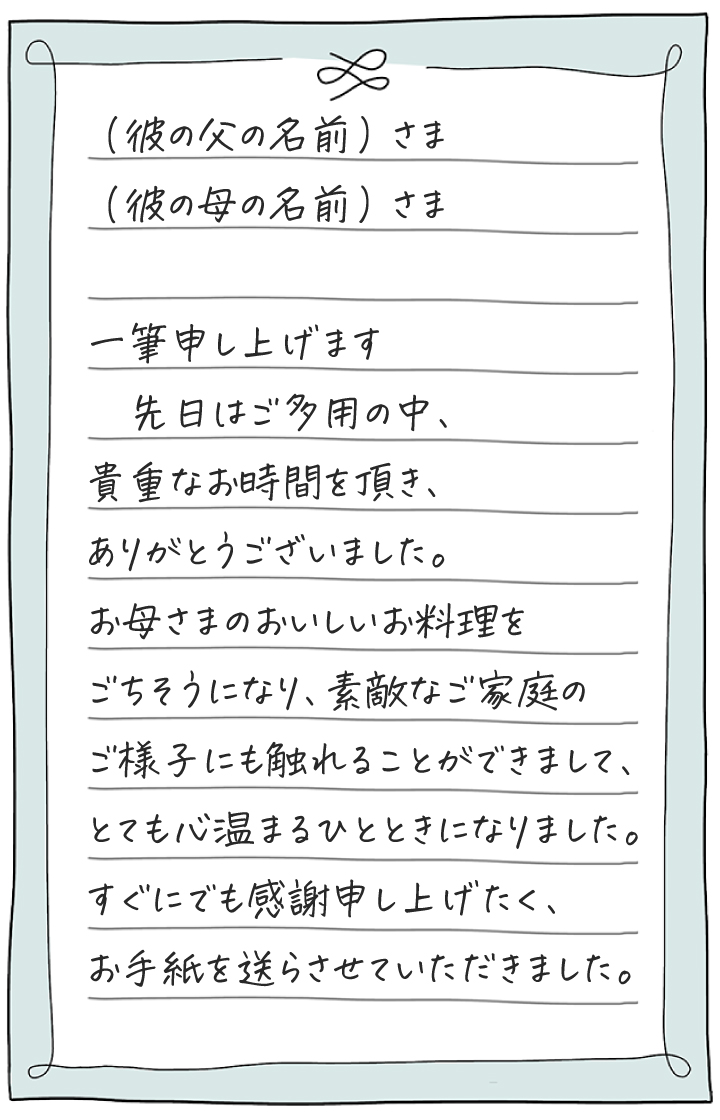 （彼の父の名前）さま
（彼の母の名前）さま
一筆申し上げます
先日はご多用の中、
貴重なお時間を頂き、
ありがとうございました。
お母さまのおいしいお料理を
ごちそうになり、素敵なご家庭の
ご様子にも触れることができまして、
とても心温まるひとときになりました。
すぐにでも感謝申し上げたく、
お手紙を送らさせていただきました。